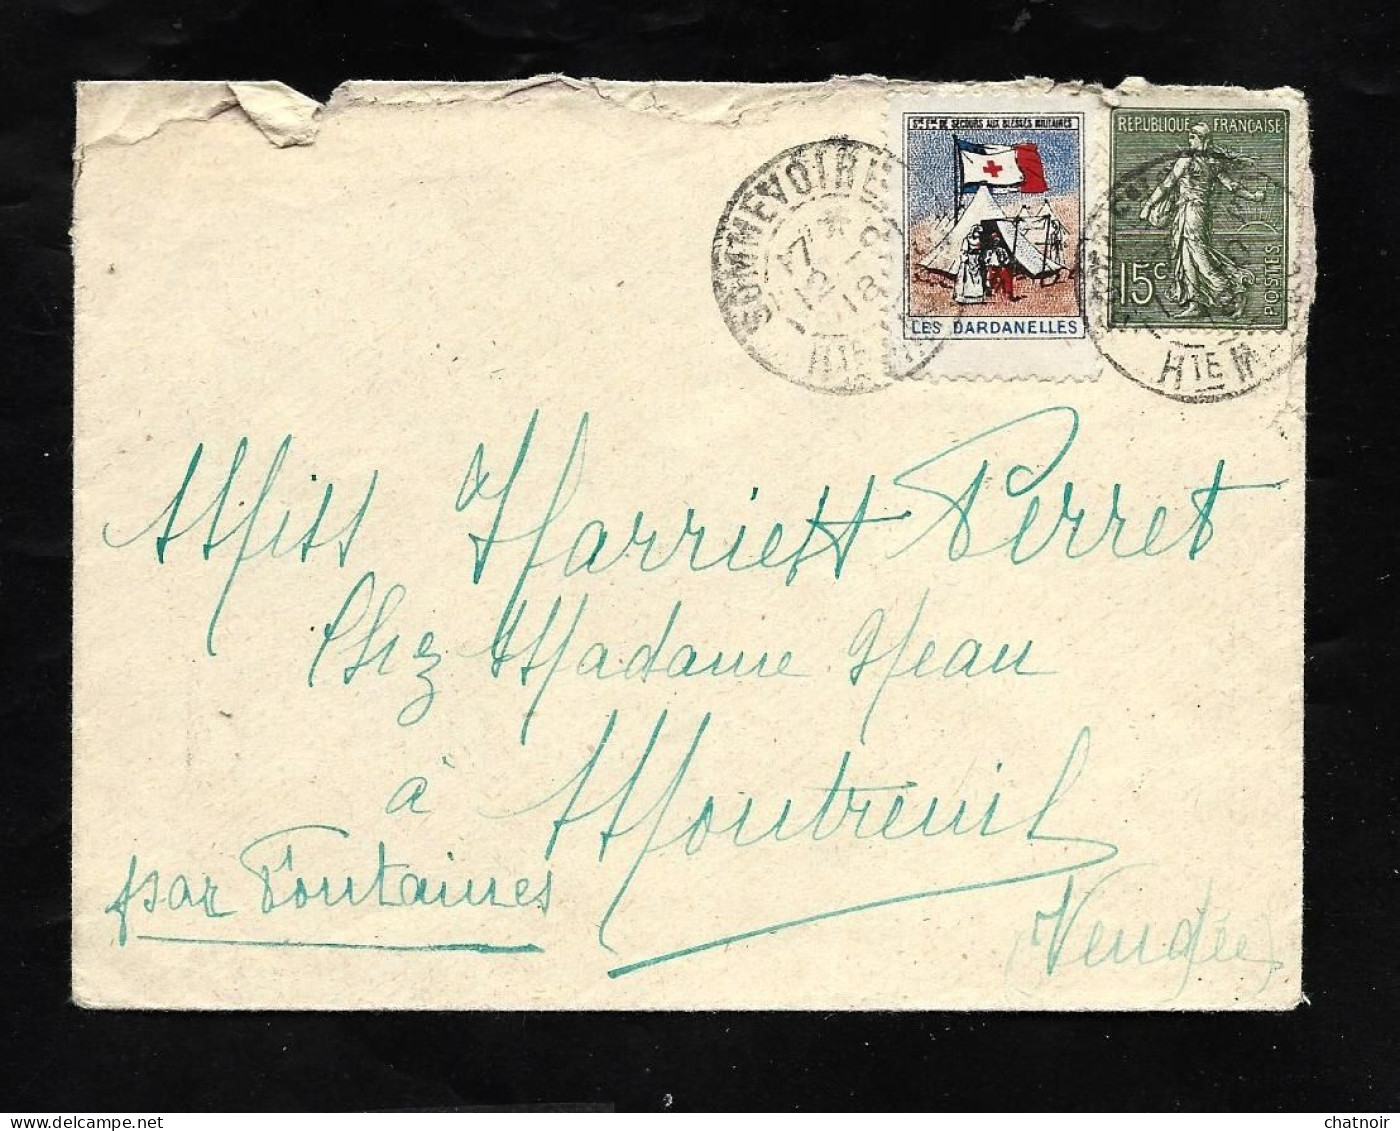 Sté Fse DE SECOURS AUX BLESSÉS MILITAIRES
LES DARDANELLES
REPUBLIQUE FRANÇAISE
15c
POSTES
SOMMEVOIRE
HTE
HTE
Miss Harriett Perret
Chez Madame Neau
à Montreuil
par Fontaines
(Vendée)
chatnoir / Delcampe.net